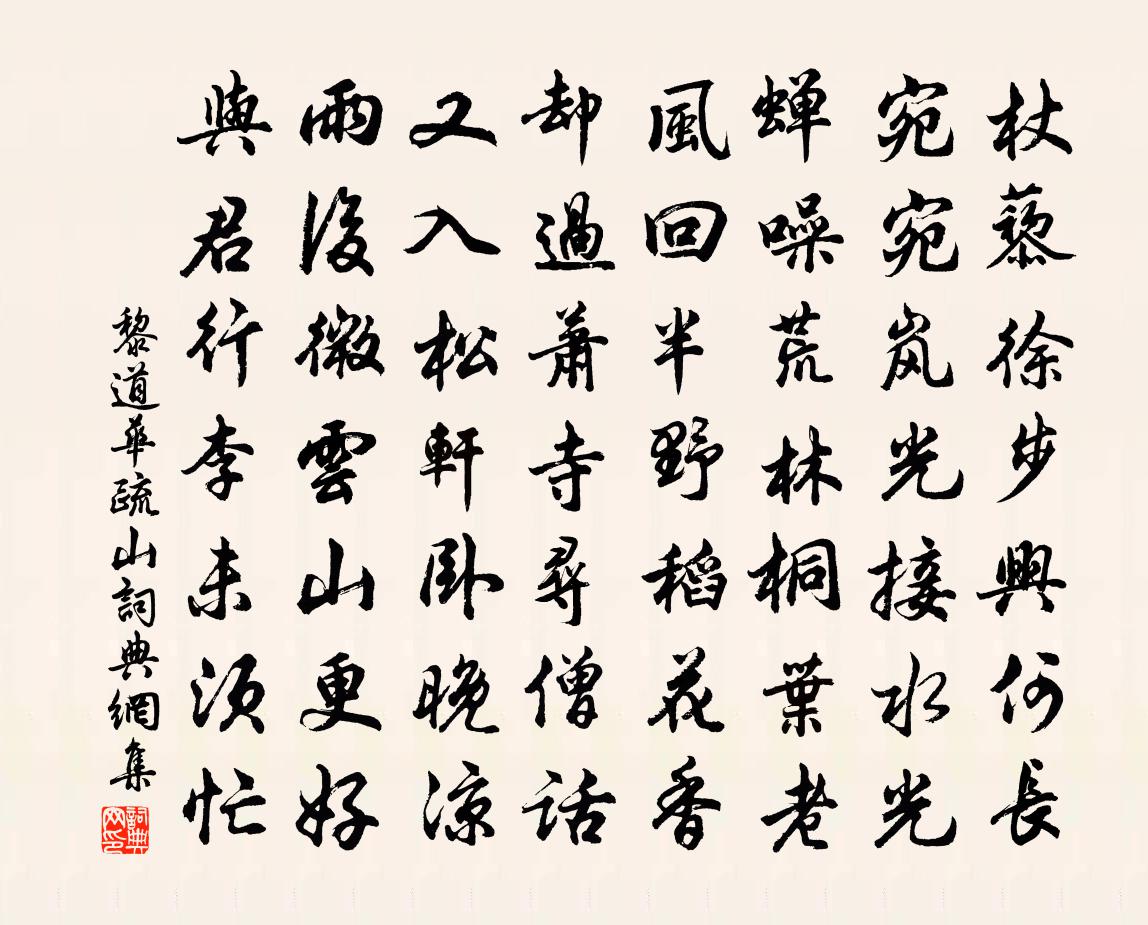 杖藜徐步興何長
宛宛岚光接水光
蝉噪荒林桐葉老
風回半野稻花香
却過蕭寺尋僧話
又入松軒卧晚涼
雨後微雲山更好
與君行李未須忙
黎道華疏山詞典網集
詞典網印